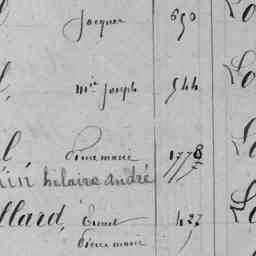 Jacques 650
Mie Joseph 544
Pierre marie 1778
in hilaire andré
llard, Ernest 427
Pierre marie